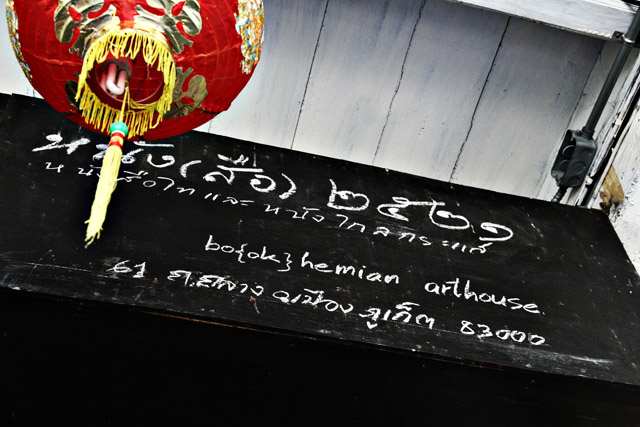 หนัง(สือ) ๒๕๒๑
หนังสือไทและหนังไกลกระแส
bo{ok}hemian arthouse.
61 ถ.ถลาง อ.เมือง ภูเก็ต 83000